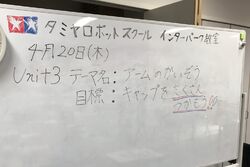 タミヤロボットスクール インターパーク教室
4月20日(木)
Unit3 テーマ名:アームのかいぞう
目標:キャップをたくさん
つかもう!!